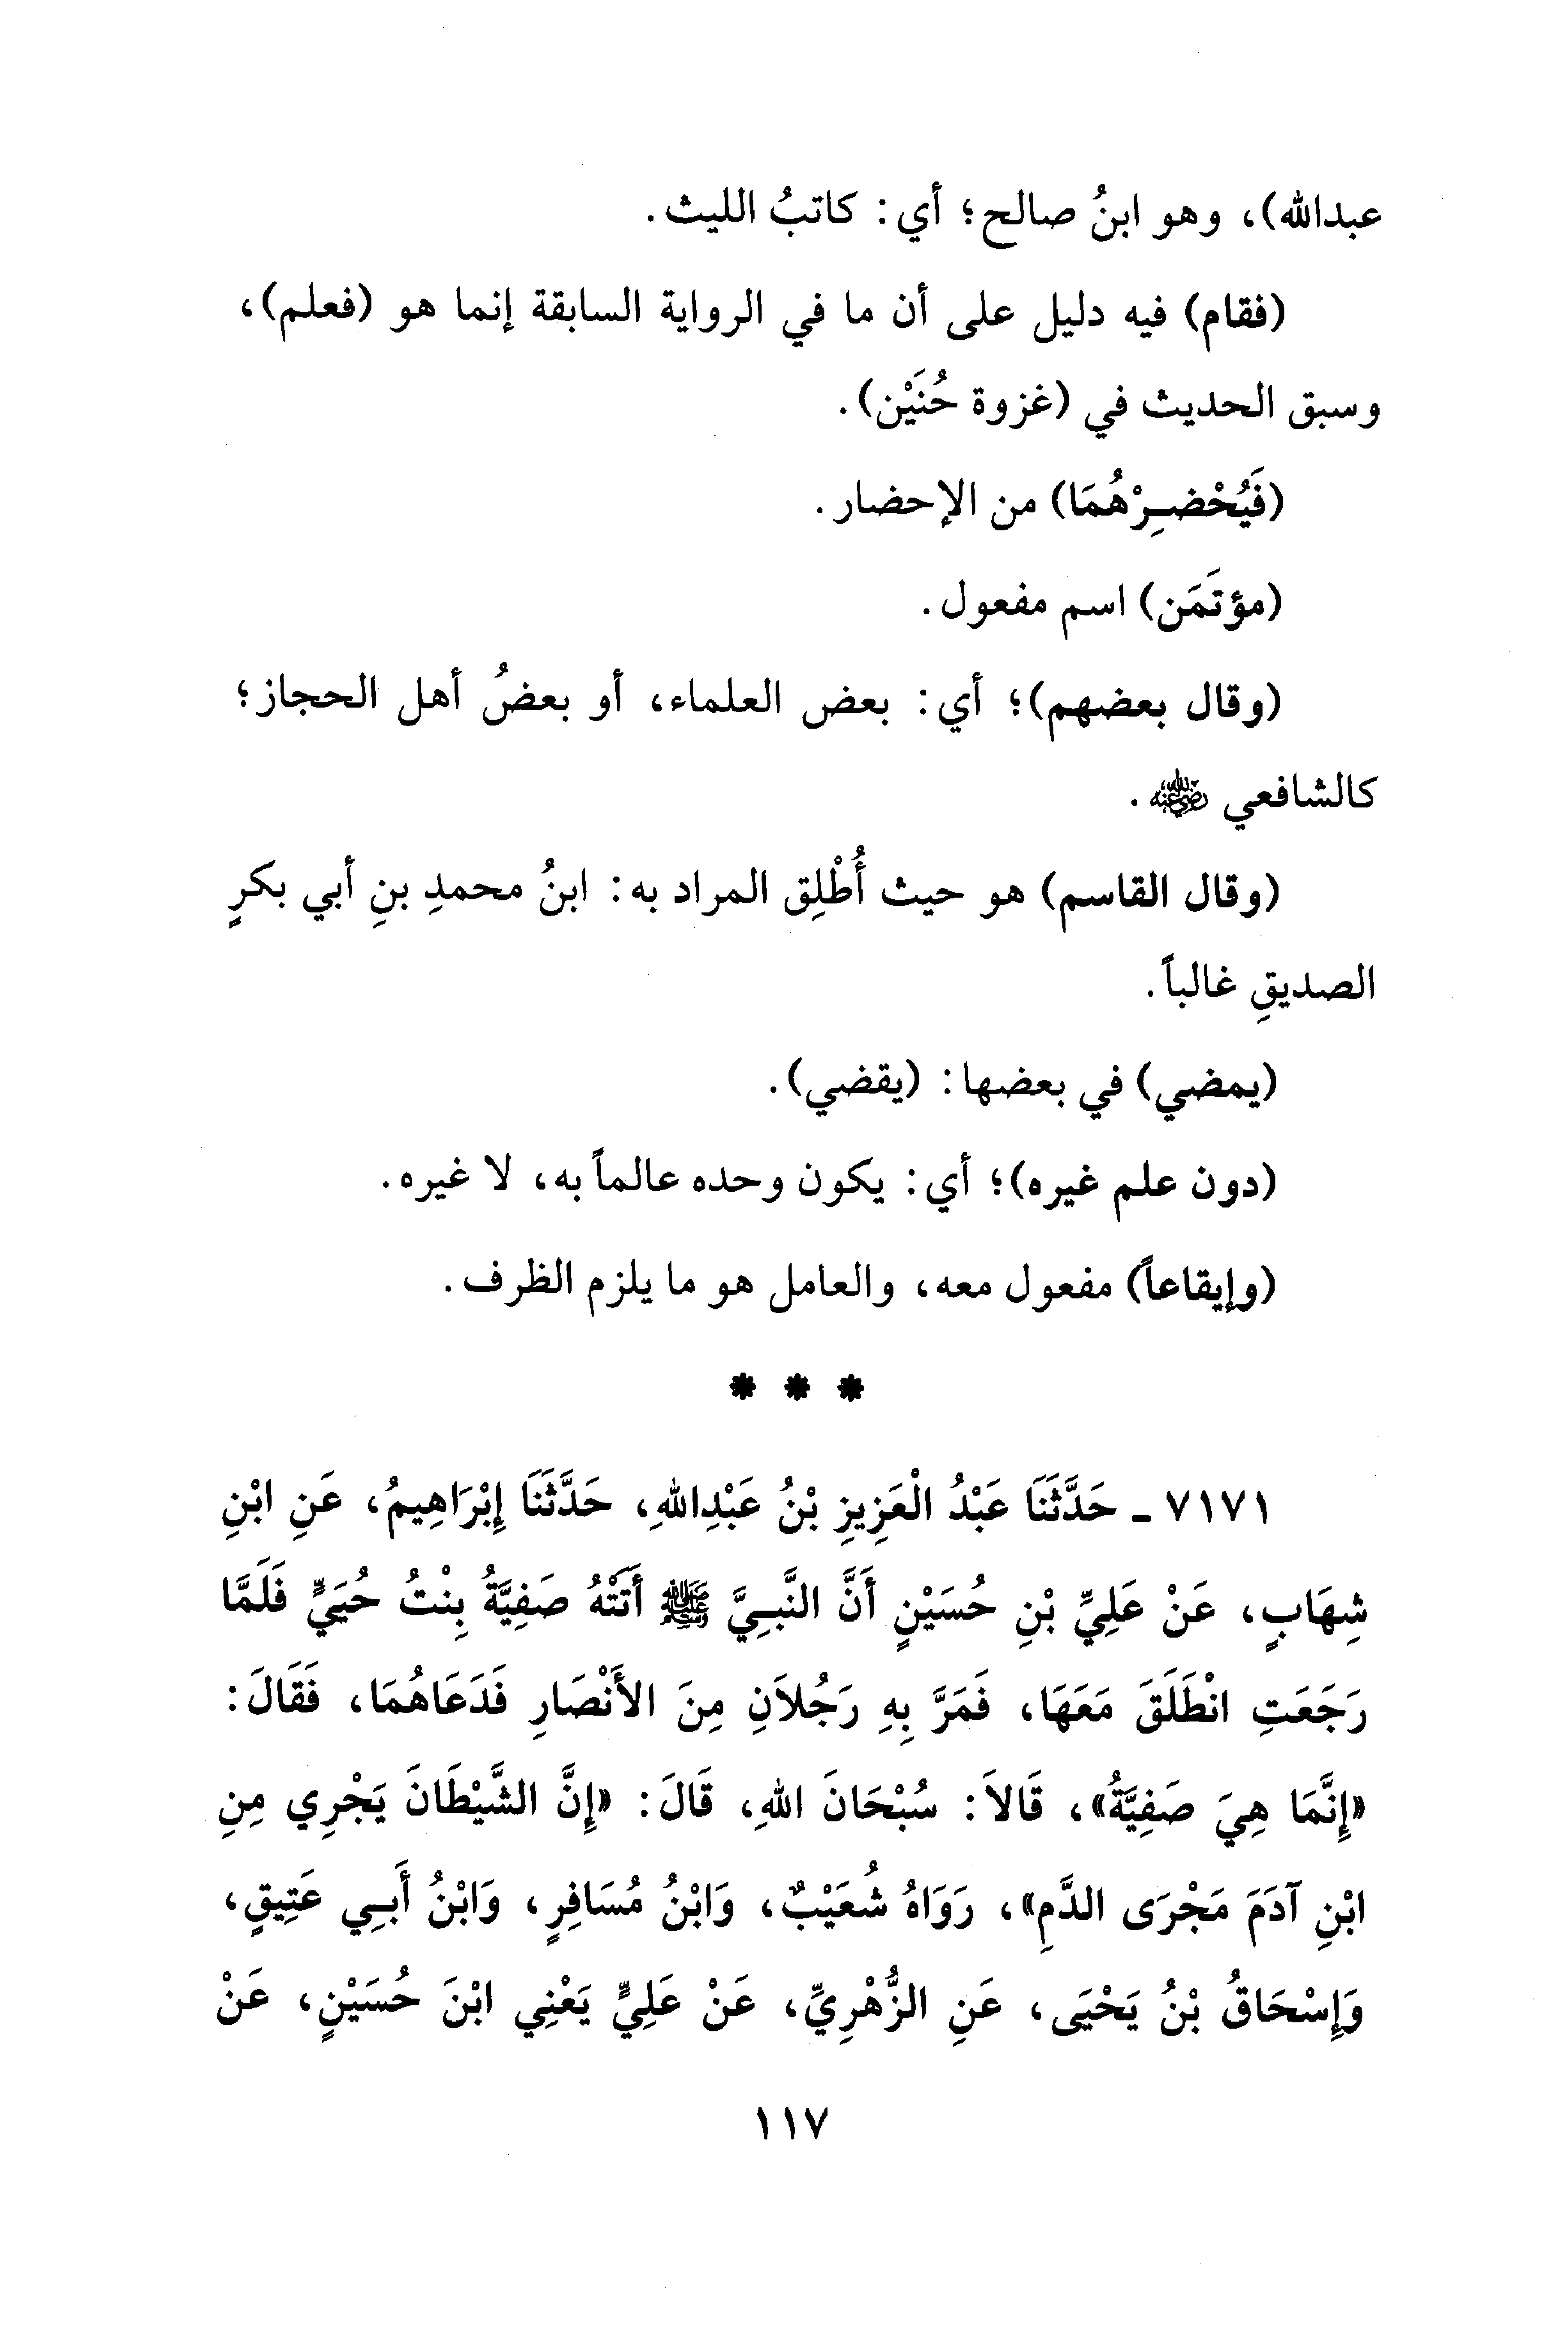 عبدالله)، وهو ابنُ صالح؛ أي: كاتبُ الليث.
(فقام) فيه دليل على أن ما في الرواية السابقة إنما هو (فعلم)،
وسبق الحديث في (غزوة حُنَيْن).
(فَيُحْضِرْهُمَا) من الإحضار.
(مؤتَمَن) اسم مفعول.
(وقال بعضهم)؛ أي: بعض العلماء، أو بعضُ أهل الحجاز؛
كالشافعي رضي الله عنه.
(وقال القاسم) هو حيث أُطْلِق المراد به: ابنُ محمدِ بنِ أبي بكرٍ
الصديقِ غالباً.
(يمضي) في بعضها: (يقضي).
(دون علم غيره)؛ أي: يكون وحده عالماً به، لا غيره.
(وإيقاعاً) مفعول معه، والعامل هو ما يلزم الظرف.
* * *
٧١٧١ - حَدَّثَنَا عَبْدُ الْعَزِيزِ بْنُ عَبْدِاللهِ، حَدَّثَنَا إِبْرَاهِيمُ، عَنِ ابْنِ
شِهَابٍ، عَنْ عَلِيِّ بْنِ حُسَيْنٍ أَنَّ النَّبِيَّ ﷺ أَتَتْهُ صَفِيَّةُ بِنْتُ حُيَيٍّ فَلَمَّا
رَجَعَتِ انْطَلَقَ مَعَهَا، فَمَرَّ بِهِ رَجُلاَنِ مِنَ الأَنْصَارِ فَدَعَاهُمَا، فَقَالَ:
«إِنَّمَا هِيَ صَفِيَّةُ»، قَالاَ: سُبْحَانَ اللهِ، قَالَ: «إِنَّ الشَّيْطَانَ يَجْرِي مِنِ
ابْنِ آدَمَ مَجْرَى الدَّمِ»، رَوَاهُ شُعَيْبٌ، وَابْنُ مُسَافِرٍ، وَابْنُ أَبِي عَتِيقٍ،
وَإِسْحَاقُ بْنُ يَحْيَى، عَنِ الزُّهْرِيِّ، عَنْ عَلِيٍّ يَعْنِي ابْنَ حُسَيْنٍ، عَنْ
١١٧